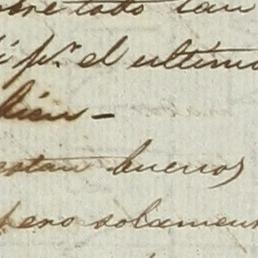 sobre todo tan
i pr. el ultimo
bien —
estan buenos
pero solamen